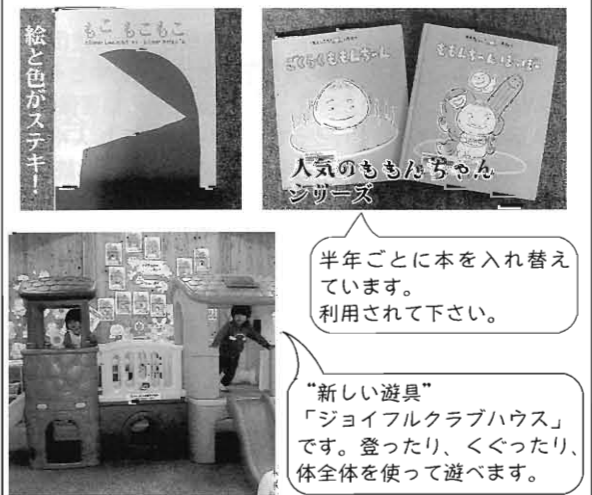 絵と色がステキ!
もこ もこもこ
ごくらくももんちゃん
人気のももんちゃん
シリーズ
半年ごとに本を入れ替え
ています。
利用されて下さい。
“新しい遊具”
「ジョイフルクラブハウス」
です。登ったり、くぐったり、
体全体を使って遊べます。